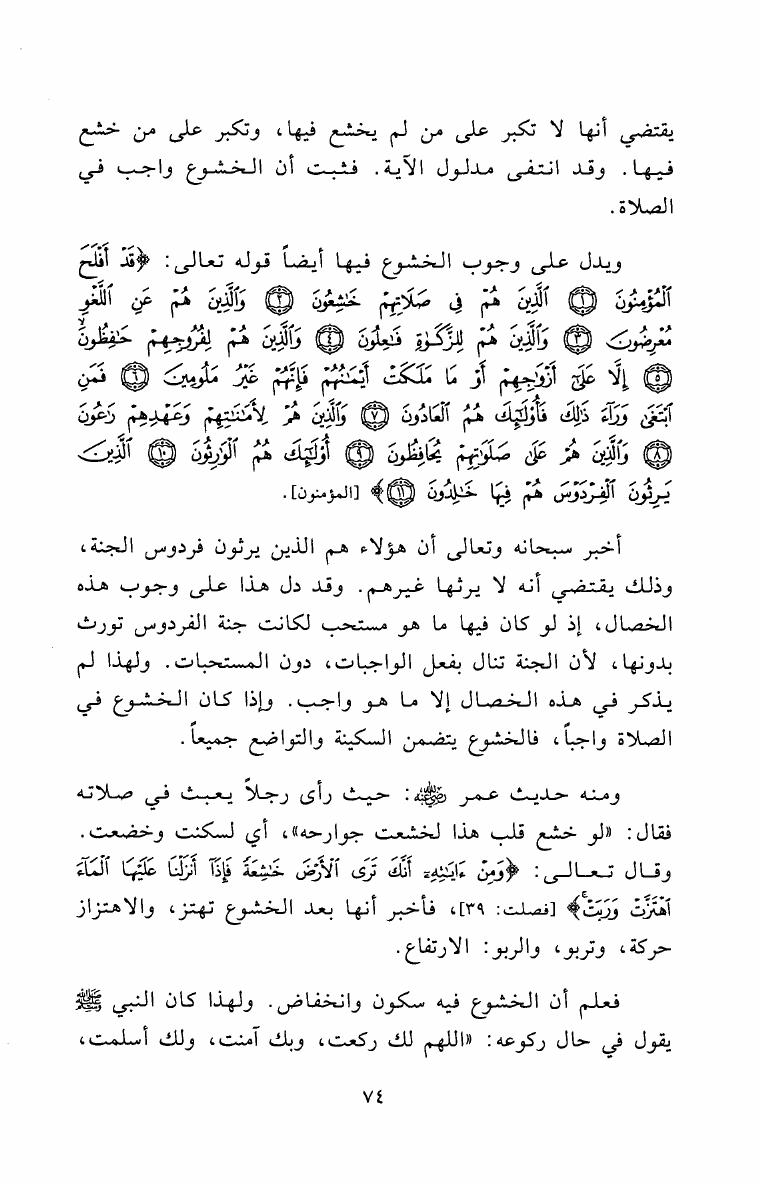 يقتضي أنها لا تكبر على من لم يخشع فيها، وتكبر على من خشع
فيها. وقد انتفى مدلول الآية. فثبت أن الخشوع واجب في
الصلاة.
ويدل على وجوب الخشوع فيها أيضاً قوله تعالى: ﴿قَدْ أَفْلَحَ
ٱلْمُؤْمِنُونَ ۝١ ٱلَّذِينَ هُمْ فِى صَلَاتِهِمْ خَٰشِعُونَ ۝٢ وَٱلَّذِينَ هُمْ عَنِ ٱللَّغْوِ
مُعْرِضُونَ ۝٣ وَٱلَّذِينَ هُمْ لِلزَّكَوٰةِ فَٰعِلُونَ ۝٤ وَٱلَّذِينَ هُمْ لِفُرُوجِهِمْ حَٰفِظُونَ
۝٥ إِلَّا عَلَىٰٓ أَزْوَٰجِهِمْ أَوْ مَا مَلَكَتْ أَيْمَٰنُهُمْ فَإِنَّهُمْ غَيْرُ مَلُومِينَ ۝٦ فَمَنِ
ٱبْتَغَىٰ وَرَآءَ ذَٰلِكَ فَأُو۟لَٰٓئِكَ هُمُ ٱلْعَادُونَ ۝٧ وَٱلَّذِينَ هُمْ لِأَمَٰنَٰتِهِمْ وَعَهْدِهِمْ رَٰعُونَ
۝٨ وَٱلَّذِينَ هُمْ عَلَىٰ صَلَوَٰتِهِمْ يُحَافِظُونَ ۝٩ أُو۟لَٰٓئِكَ هُمُ ٱلْوَٰرِثُونَ ۝١٠ ٱلَّذِينَ
يَرِثُونَ ٱلْفِرْدَوْسَ هُمْ فِيهَا خَٰلِدُونَ ۝١١﴾ [المؤمنون].
أخبر سبحانه وتعالى أن هؤلاء هم الذين يرثون فردوس الجنة،
وذلك يقتضي أنه لا يرثها غيرهم. وقد دل هذا على وجوب هذه
الخصال، إذ لو كان فيها ما هو مستحب لكانت جنة الفردوس تورث
بدونها، لأن الجنة تنال بفعل الواجبات، دون المستحبات. ولهذا لم
يذكر في هذه الخصال إلا ما هو واجب. وإذا كان الخشوع في
الصلاة واجباً، فالخشوع يتضمن السكينة والتواضع جميعاً.
ومنه حديث عمر رضي الله عنه: حيث رأى رجلاً يعبث في صلاته
فقال: «لو خشع قلب هذا لخشعت جوارحه»، أي لسكنت وخضعت.
وقال تعالى: ﴿وَمِنْ ءَايَٰتِهِۦٓ أَنَّكَ تَرَى ٱلْأَرْضَ خَٰشِعَةً فَإِذَآ أَنزَلْنَا عَلَيْهَا ٱلْمَآءَ
ٱهْتَزَّتْ وَرَبَتْ﴾ [فصلت: ٣٩]، فأخبر أنها بعد الخشوع تهتز، والاهتزاز
حركة، وتربو، والربو: الارتفاع.
فعلم أن الخشوع فيه سكون وانخفاض. ولهذا كان النبي ﷺ
يقول في حال ركوعه: «اللهم لك ركعت، وبك آمنت، ولك أسلمت،
٧٤